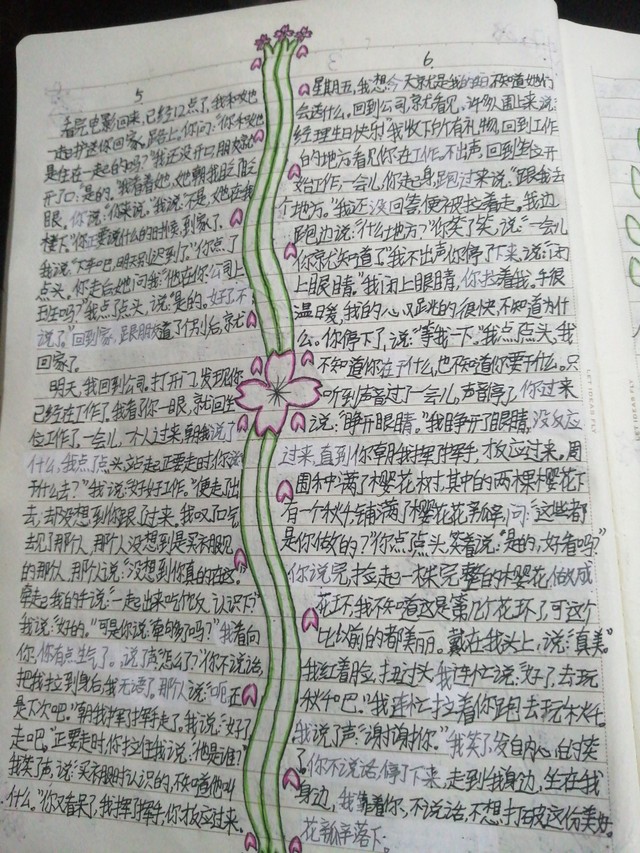 5
看完电影回来,已经12点了,我和她也
一起护送你回家,路上,你问:"你和她也
是住在一起的吗?"我还没开口,朋友就
开了口:"是的。"我看着她,她朝我眨了眨
眼。你说:"你来说。"我说:"不是,她在我
楼下。"你正要说什么的时候,到家了。
我说:"下车吧,明天别迟到了。"你点了
点头。你走后她们问我:"他在你公司上
班吗?"我点了点头,说:"是的。好了,不
说了。"回到家,跟朋友道了个别后,就
回家了。
明天,我回到公司。打开门,发现你
已经在工作了,我看了你一眼,就回坐
位工作了。一会儿,个人过来,朝我说了
什么,我点了点头,站起正要走时,你说:
"干什么去?"我说:"好好工作。"便走了出
去,却没想到你跟了过来。我叹了口气
去见了那个人,那个人没想到是买衣服见
的那个人,那个人说:"没想到你真的在这。"
牵起我的手说:"一起出来吃个饭,认识下?"
我说:"好的。"可是你说:"牵够了吗?"我看向
你,你有点生气了。说了声:"怎么了?"你不说话,
把我拉到身后,我无语了,那个人说:"呃,还
是下次吧。"朝我挥了挥手走了。我说:"好了,
走吧。"正要走时,你拉住我说:"他是谁?"
我笑了声,说:"买衣服时认识的,不知道他叫
什么。"你又看呆了,我挥了挥手,你才反应过来。
6
星期五,我想今天就是我的生日,不知道她们
会送什么。回到公司,就看见,许多人围上来说:
"经理生日快乐!"我收下所有礼物,回到工作
的地方看见你在工作。不出声,回到坐位开
始工作,一会儿,你走起身,跑过来说:"跟我去
个地方。"我还没回答,便被拉着走。我边
跑边说:"什么地方?"你笑了笑,说:"一会儿
你就知道了。"我不出声,你停了下来,说:"闭
上眼睛。"我闭上眼睛,你拉着我。手很
温暖,我的心又跳的很快,不知道为什
么。你停下了,说:"等我一下。"我点点头,我
不知道你在干什么,也不知道你要干什么。只
听到声音,过了一会儿,声音停了,你过来
说:"睁开眼睛。"我睁开了眼睛,没反应
过来,直到你朝我挥了挥手,才反应过来。周
围种满了樱花树,其中的两棵樱花下
有一个秋千,铺满了樱花花瓣,问:"这些都
是你做的?"你点点头,笑着说:"是的,好看吗?"
你说完,捡起一朵完整的樱花做成
花环,我不知道这是第几个花环了,可这个
比以前的都美丽。戴在我头上,说:"真美。"
我红着脸,扭过头,我连忙说:"好了,去玩
秋千吧。"我连忙拉着你跑去玩秋千。
我说了声:"谢谢你。"我笑了,发自内心的笑
了。你不说话,停了下来,走到我身边,坐在我
身边,我靠着你,不说话,不想打破这份美好。
花瓣落下。